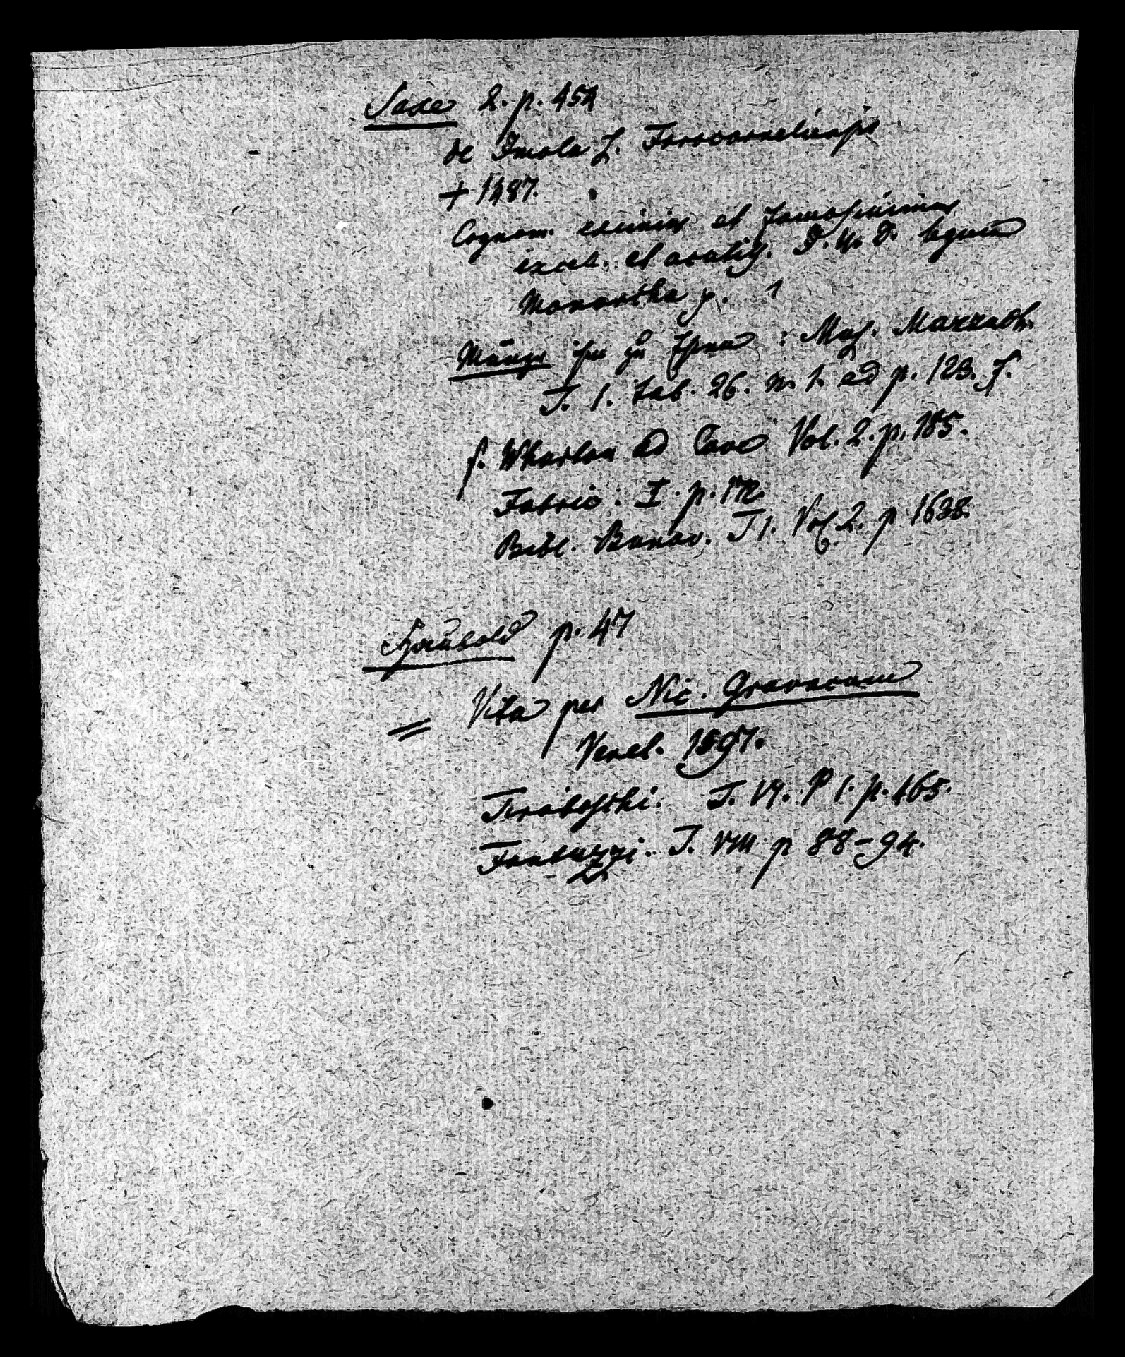 Saxe 2. p. 454
de Imola s. Forocorneliensis
+ 1487.
Cognom. eximius et famosissimus
excell. et acutiss. D. U. D. legum
Monarcha p. 1
Münze ihm zu Ehren : Mus. Mazzuch.
T. 1. tab. 26. n. 1. ad p. 123. f.
s. Wharton ad Cave Vol. 2. p. 185.
Fabric. I. p. 172
Bibl. Bunav. T 1. Vol. 2. p 1638.
Haubold p. 47
= Vita per Nic.
Venet. 1597.
Tiraboschi. T. VI. P 1. p. 465.
Fantuzzi. T. VIII p 88-94.